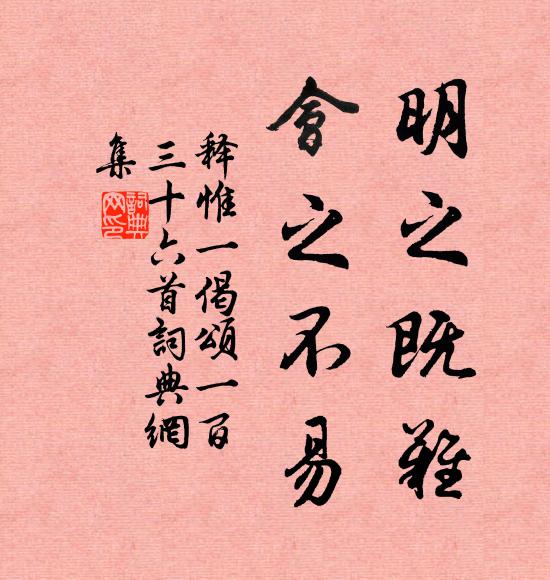 明之既難
會之不易
释惟一偈頌一百
三十六首詞典網
集
詞典網印